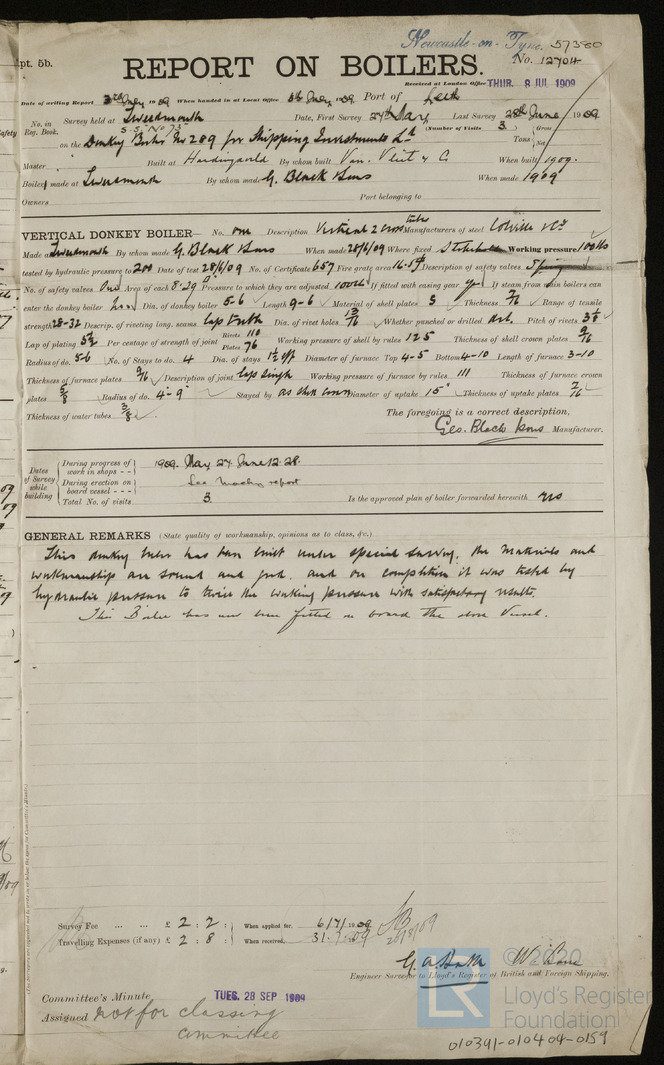 Newcastle-on-Tyne. 57380
Rpt. 5b.
REPORT ON BOILERS.
No. 12704
Received at London Office THUR. 8 JUL 1909
Date of writing Report 3rd July 1909 When handed in at Local Office 5th July 1909 Port of Leith
No. in Reg. Book. Survey held at Tweedmouth Date, First Survey 27th May Last Survey 28th June 1909
(Number of Visits 3)
S.S. No 73
on the Donkey Boiler No 289 for Shipping Investments Ld Tons { Gross Net
Master Built at Hardinxveld By whom built Van Vliet & Co When built 1909.
Boiler made at Tweedmouth By whom made G. Black & Sons When made 1909
Owners Port belonging to
VERTICAL DONKEY BOILER— No. one Description Vertical 2 cross tubes Manufacturers of steel Colville & Co
Made at Tweedmouth By whom made G. Black & Sons When made 28/6/09 Where fixed Stokehold Working pressure 100 lbs
tested by hydraulic pressure to 200 Date of test 28/6/09 No. of Certificate 657 Fire grate area 16.5 Description of safety valves Spring
No. of safety valves One Area of each 8.29 Pressure to which they are adjusted 100 lbs If fitted with easing gear yes If steam from main boilers can
enter the donkey boiler no Dia. of donkey boiler 5-6 Length 9-6 Material of shell plates S Thickness 7/16 Range of tensile
strength 28-32 Descrip. of riveting long. seams lap Dia. of rivet holes 13/16 Whether punched or drilled drl. Pitch of rivets 3 1/8
Lap of plating 5 1/2 Per centage of strength of joint Rivets 110 Plates 76 Working pressure of shell by rules 125 Thickness of shell crown plates 9/16
Radius of do. 5-6 No. of Stays to do. 4 Dia. of stays 1 1/2 eff Diameter of furnace Top 4-5 Bottom 4-10 Length of furnace 3-10
Thickness of furnace plates 9/16 Description of joint lap single Working pressure of furnace by rules 111 Thickness of furnace crown
plates 5/8 Radius of do. 4-9 Stayed by as shell crown Diameter of uptake 15" Thickness of uptake plates 7/16
Thickness of water tubes 3/8
The foregoing is a correct description.
Geo. Black & Sons Manufacturer.
Dates of Survey while building
During progress of work in shops - - 1909. May 27 June 12. 28.
During erection on board vessel - - - See Machy report
Total No. of visits 3 Is the approved plan of boiler forwarded herewith yes
GENERAL REMARKS (State quality of workmanship, opinions as to class, &c.)
This donkey boiler has been built under special survey, the materials and
workmanship are sound and good, and on completion it was tested by
hydraulic pressure to twice the working pressure with satisfactory results.
This Boiler has now been fitted on board the above Vessel.
Survey Fee ... ... £ 2 : 2 : When applied for, 6/7/1909
Travelling Expenses (if any) £ 2 : 8 : When received, 31. 1909
20/8/09
Engineer Surveyor to Lloyd's Register of British and Foreign Shipping.
Committee's Minute TUES. 28 SEP 1909
Assigned not for classing
committee
© 2020
LR
Lloyd's Register
Foundation
010391-010404-0159